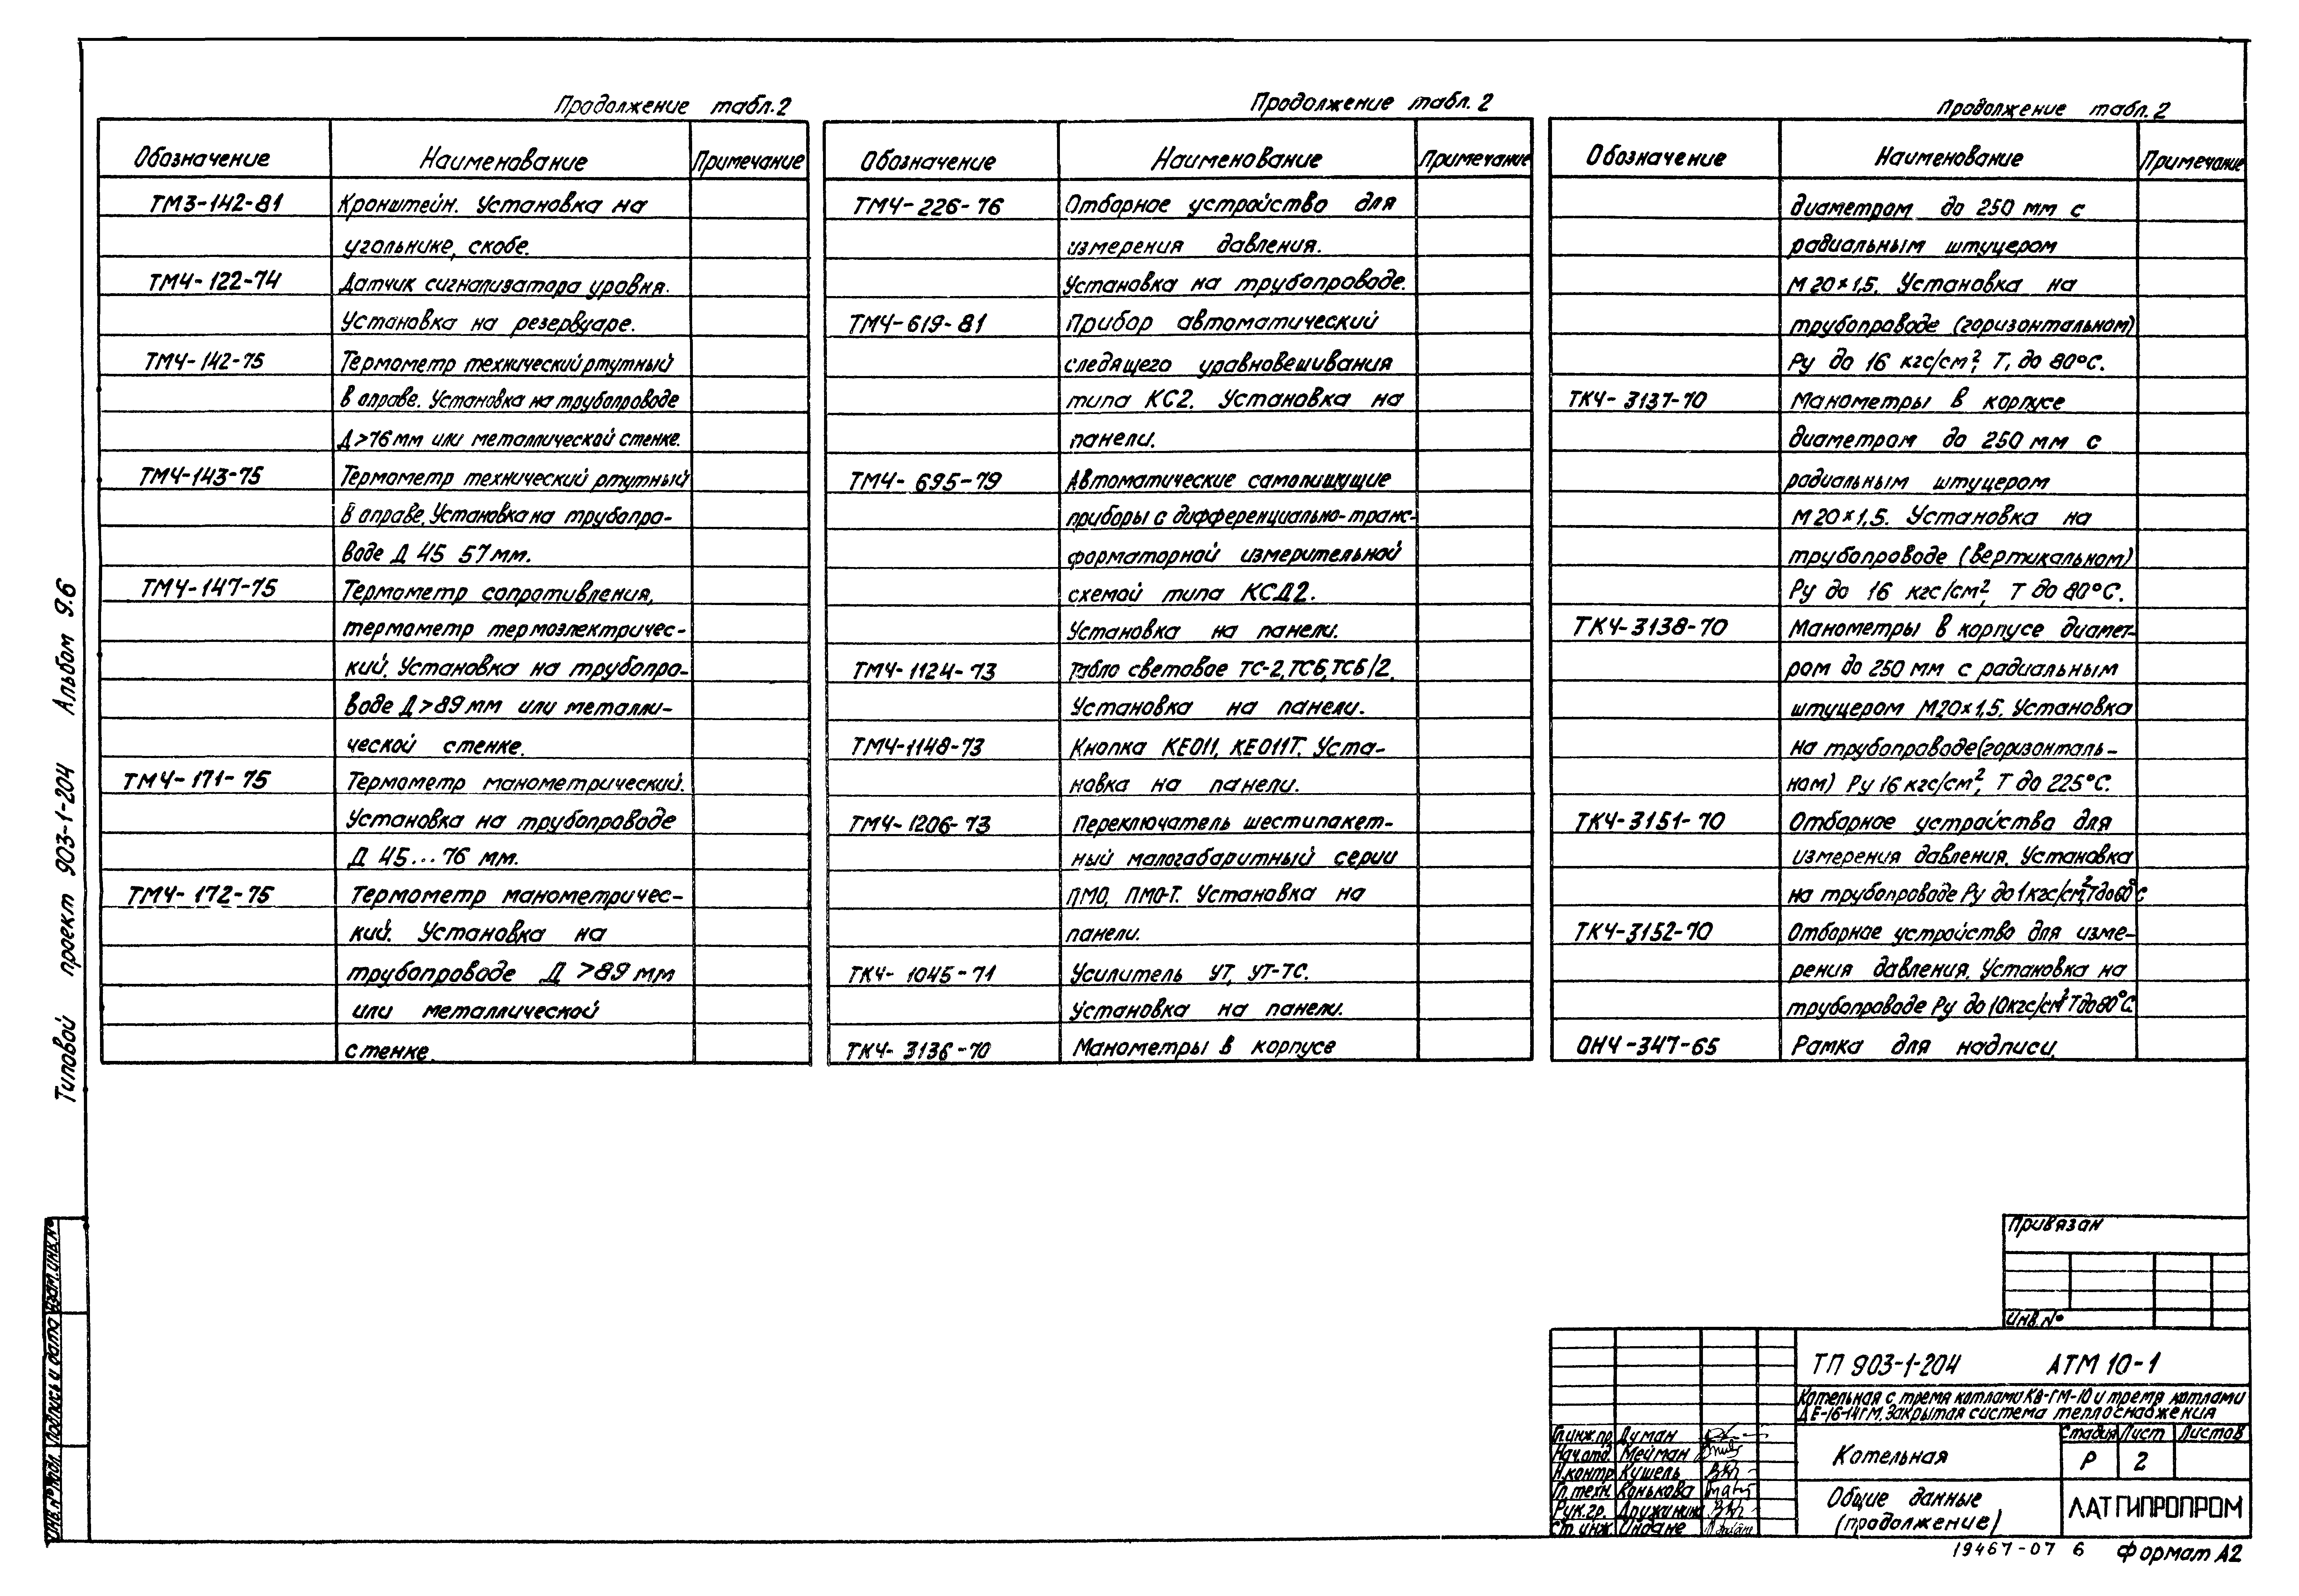 Продолжение табл.2
Обозначение Наименование Примечание
ТМ3-142-81 Кронштейн. Установка на
угольнике, скобе.
ТМЧ-122-74 Датчик сигнализатора уровня.
Установка на резервуаре.
ТМЧ-142-75 Термометр технический ртутный
в оправе. Установка на трубопроводе
Д>76 мм или металлической стенке.
ТМЧ-143-75 Термометр технический ртутный
в оправе. Установка на трубопро-
воде Д 45 57 мм.
ТМЧ-147-75 Термометр сопротивления,
термометр термоэлектричес-
кий. Установка на трубопро-
воде Д>89 мм или металли-
ческой стенке.
ТМЧ-171-75 Термометр манометрический.
Установка на трубопроводе
Д 45...76 мм.
ТМЧ-172-75 Термометр манометричес-
кий. Установка на
трубопроводе Д >89 мм
или металлической
стенке.
Продолжение табл. 2
Обозначение Наименование Примечание
ТМЧ-226-76 Отборное устройство для
измерения давления.
Установка на трубопроводе.
ТМЧ-619-81 Прибор автоматический
следящего уравновешивания
типа КС2. Установка на
панели.
ТМЧ-695-79 Автоматические самопишущие
приборы с дифференциально-транс-
форматорной измерительной
схемой типа КСД2.
Установка на панели.
ТМЧ-1124-73 Табло световое ТС-2, ТСБ, ТСБ/2.
Установка на панели.
ТМЧ-1148-73 Кнопка КЕ011, КЕ011Т. Уста-
новка на панели.
ТМЧ-1206-73 Переключатель шестипакет-
ный малогабаритный серии
ПМО, ПМО-Т. Установка на
панели.
ТКЧ-1045-71 Усилитель УТ, УТ-ТС.
Установка на панели.
ТКЧ-3136-70 Манометры в корпусе
Продолжение табл. 2
Обозначение Наименование Примечание
диаметром до 250 мм с
радиальным штуцером
М 20×1,5. Установка на
трубопроводе (горизонтальном)
Ру до 16 кгс/см², Т, до 80°С.
ТКЧ-3137-70 Манометры в корпусе
диаметром до 250 мм с
радиальным штуцером
М20×1,5. Установка на
трубопроводе (вертикальном)
Ру до 16 кгс/см², Т до 80°С.
ТКЧ-3138-70 Манометры в корпусе диамет-
ром до 250 мм с радиальным
штуцером М20×1,5. Установка
на трубопроводе (горизонталь-
ном) Ру 16 кгс/см², Т до 225°С.
ТКЧ-3151-70 Отборное устройство для
измерения давления. Установка
на трубопроводе Ру до 1кгс/см², Т до 60°С
ТКЧ-3152-70 Отборное устройство для изме-
рения давления. Установка на
трубопроводе Ру до 10кгс/см² Т до 80°С.
ОНЧ-347-65 Рамка для надписи
Типовой проект 903-1-204 Альбом 9.6
Инв.№ подл. Подпись и дата Взам.инв.№
Привязан
Инв.№
ТП 903-1-204 АТМ 10-1
Котельная с тремя котлами КВ-ГМ-10 и тремя котлами
ДЕ-16-14ГМ. Закрытая система теплоснабжения
Гл.инж.пр. Думан
Нач.отд. Мейман
Н.контр. Кушель
Гл.техн. Конькова
Рук.гр. Дружинина
Ст.инж. Индане
Котельная
Стадия Лист Листов
Р 2
Общие данные
(продолжение)
ЛАТГИПРОПРОМ
19467-07 6 Формат А2